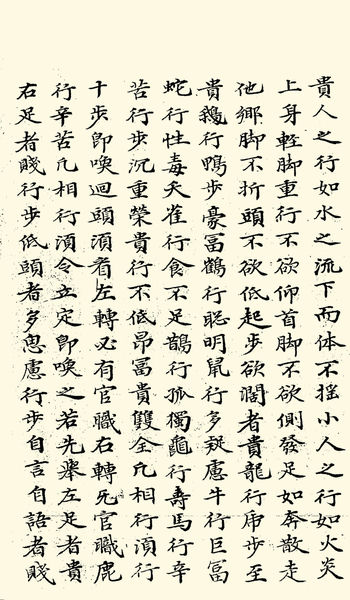 貴人之行如水之流下而体不摇小人之行如火炎
上身輕脚重行不欲仰首脚不欲側發足如奔散走
他鄉脚不折頭不欲低起步欲闊者貴龍行虎步至
貴鵝行鴨步豪冨鶴行聡明鼠行多疑慮牛行巨冨
蛇行性毒夭雀行食不足鵲行孤獨龜行壽馬行辛
苦行步沉重榮貴行不低昂冨貴雙全凡相行湏行
十步卽喚迴頭湏看左轉必有官職右轉无官職鹿
行辛苦凡相行湏令立定卽喚之若先舉左足者貴
右足者賤行步低頭者多思慮行步自言自語者賤